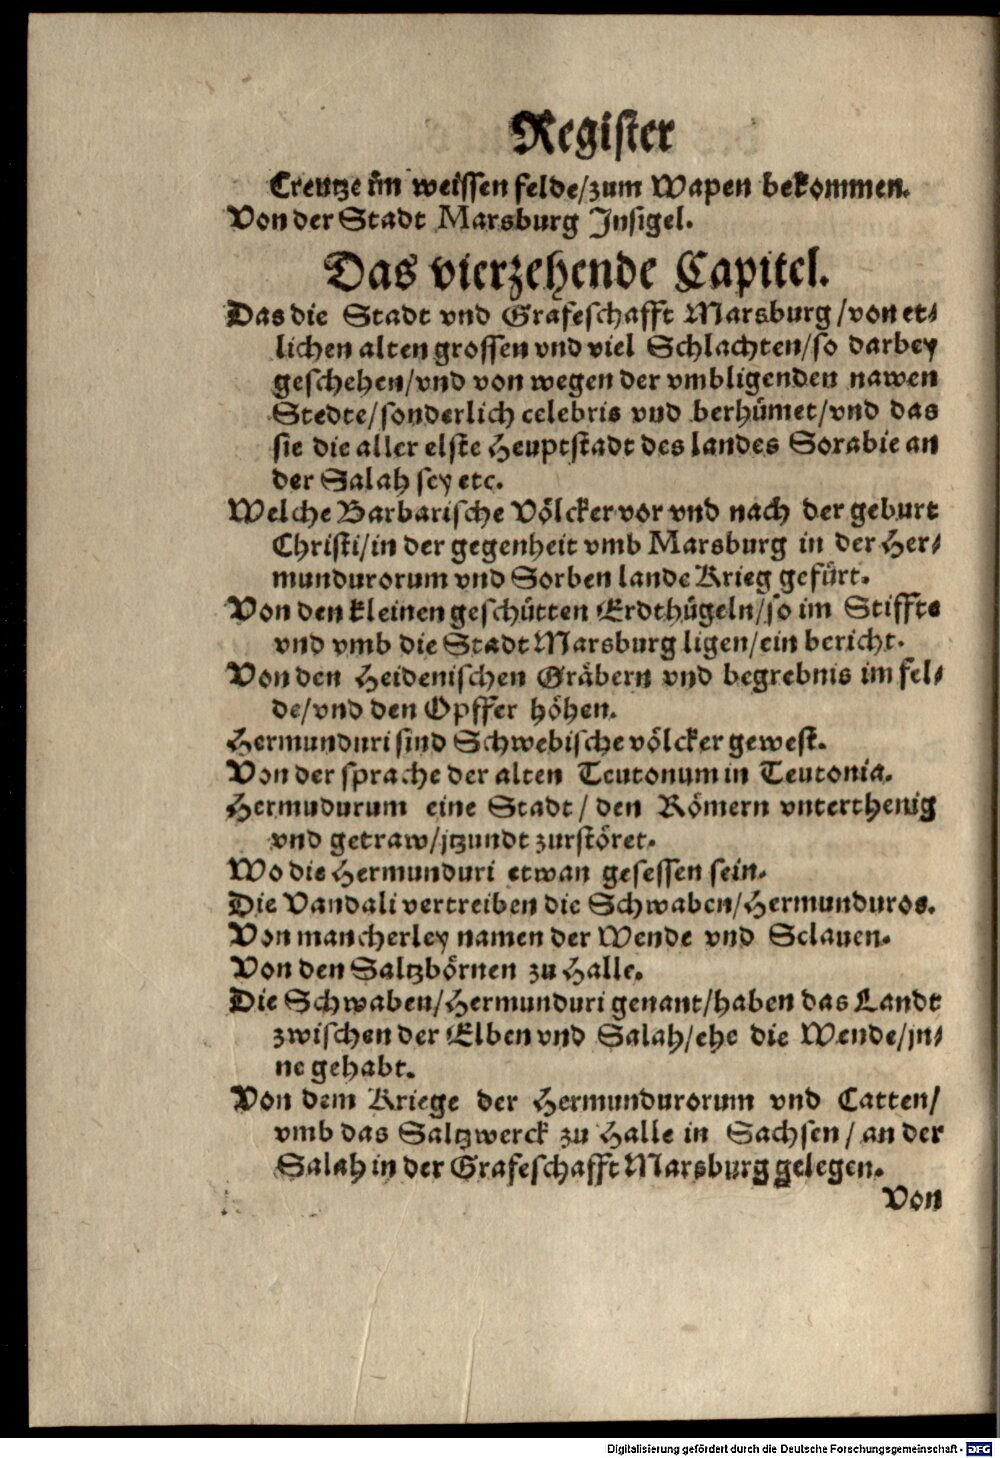 Register
Creutze im weissen felde/zum Wapen bekommen.
Von der Stadt Marsburg Insigel.
Das vierzehende Capitel.
Das die Stadt vnd Grafeschafft Marsburg/von et⸗
lichen alten grossen vnd viel Schlachten/so darbey
geschehen/vnd von wegen der vmbligenden nawen
Stedte/sonderlich celebris vnd berhümet/vnd das
sie die aller elste Heuptstadt des landes Sorabie an
der Salah sey etc.
Welche Barbarische Völcker vor vnd nach der geburt
Christi/in der gegenheit vmb Marsburg in der Her⸗
mundurorum vnd Sorben lande Krieg gefürt.
Von den kleinen geschütten Erdthügeln/so im Stiffte
vnd vmb die Stadt Marsburg ligen/ein bericht.
Von den Heidenischen Gräbern vnd begrebnis im fel⸗
de/vnd den Opffer höhen.
Hermunduri sind Schwebische völcker gewest.
Von der sprache der alten Teutonum in Teutonia.
Hermudurum eine Stadt/ den Römern vnterthenig
vnd getraw/jtzundt zurstöret.
Wo die Hermunduri etwan gesessen sein.
Die Vandali vertreiben die Schwaben/Hermunduros.
Von mancherley namen der Wende vnd Sclauen.
Von den Saltzbörnen zu Halle.
Die Schwaben/Hermunduri genant/haben das Landt
zwischen der Elben vnd Salah/ehe die Wende/jn⸗
ne gehabt.
Von dem Kriege der Hermundurorum vnd Catten/
vmb das Saltzwerck zu Halle in Sachsen/ an der
Salah in der Grafeschafft Marsburg gelegen.
Von
Digitalisierung gefördert durch die Deutsche Forschungsgemeinschaft - DFG